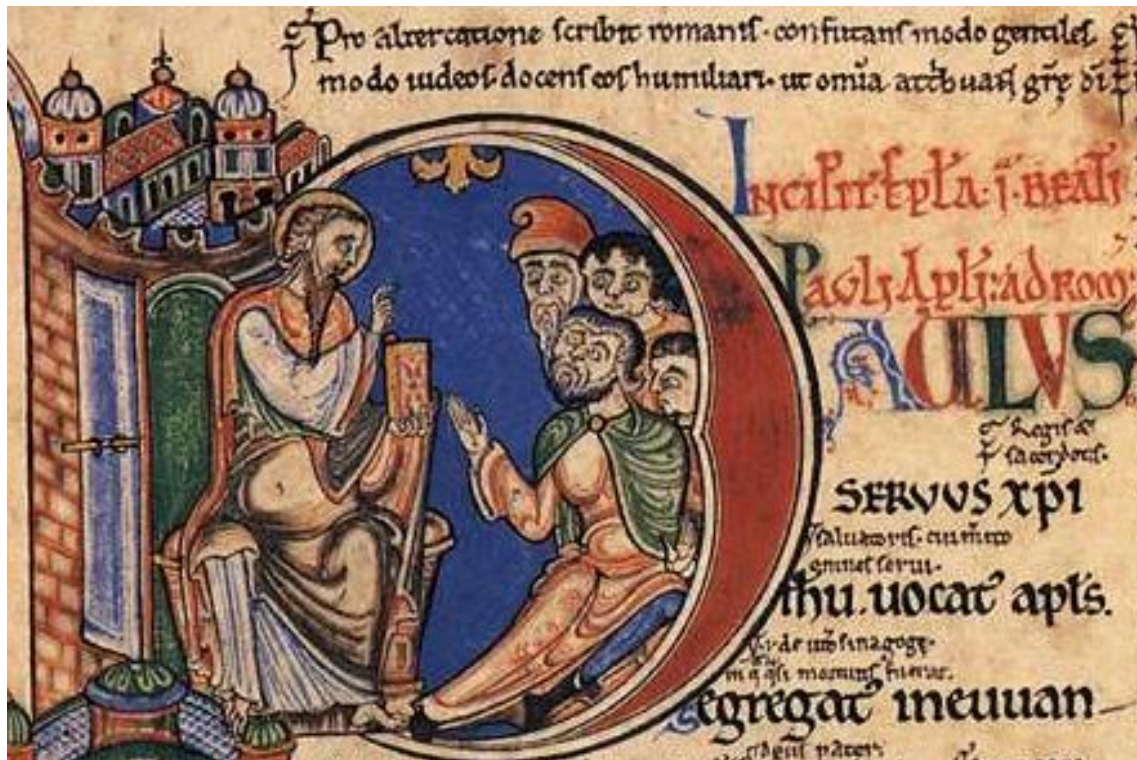 Pro altercatione scribit romanis · confutans modo gentiles
modo iudeos · docens eos humiliari · ut omīa attͥbuant grȩ dī
Incipit · epl̄a · i · beati
Pauli Apl̄i : ad rom̄
Aulus
regis &
sacerdotis ·
servus xpi
salvatoris · cui
omnes servi ·
ihu · uocat᾽ apl̄s .
de sinagoge ·
segregat᾽ in euuan